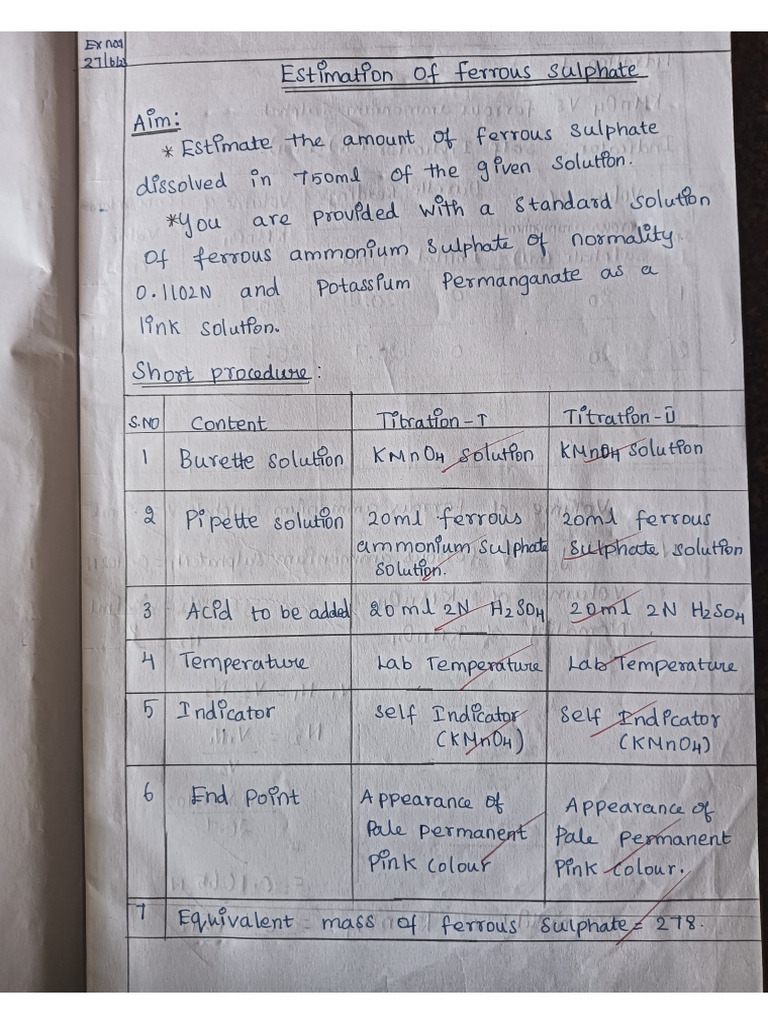 Ex no1
Estimation of ferrous sulphate
Aim:
* Estimate the amount of ferrous sulphate
dissolved in 750ml of the given solution.
* You are provided with a standard solution
of ferrous ammonium sulphate of normality
0.1102N and Potassium Permanganate as a
link solution.
Short procedure:
S.NO Content Titration-I Titration-II
1 Burette solution KMnO4 solution KMnO4 solution
2 Pipette solution 20ml ferrous 20ml ferrous
ammonium sulphate sulphate solution
solution.
3 Acid to be added 20ml 2N H2SO4 20ml 2N H2SO4
4 Temperature Lab Temperature Lab Temperature
5 Indicator Self Indicator Self Indicator
(KMnO4) (KMnO4)
6 End Point Appearance of Appearance of
Pale permanent Pale permanent
Pink colour Pink colour.
7 Equivalent mass of ferrous sulphate = 278.